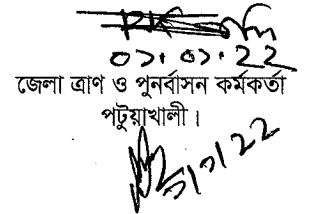 ০১.০১.22
জেলা ত্রাণ ও পুনর্বাসন কর্মকর্তা
পটুয়াখালী।